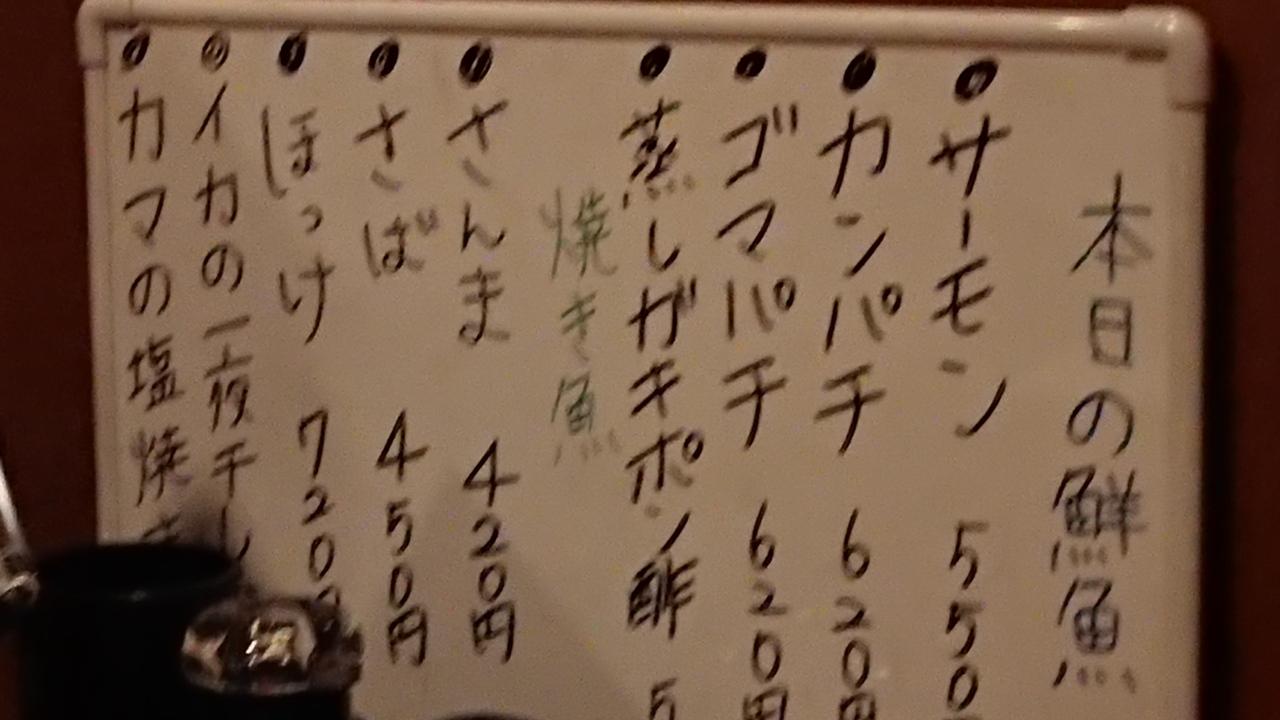 本日の鮮魚
サーモン 550
カンパチ 620円
ゴマパチ 620円
蒸しガキポン酢 5
焼き魚
さんま 420円
さば 450円
ほっけ 720円
イカの一夜干し
カマの塩焼き